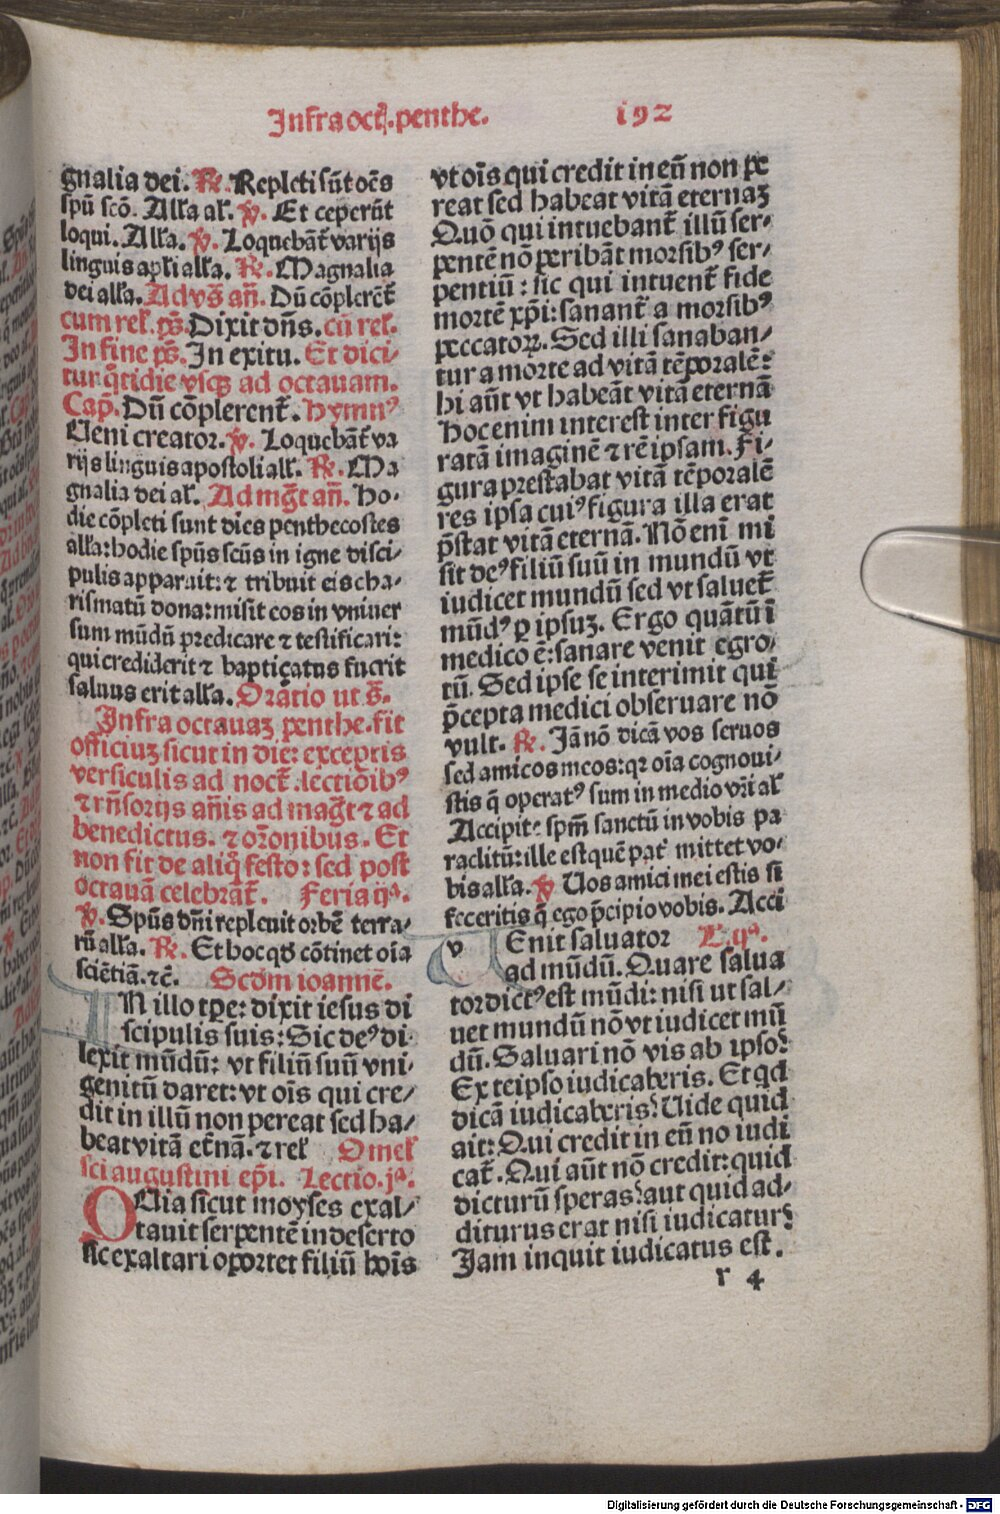 Infra oct̄. penthe. 192
gnalia dei. ℟. Repleti sūt oēs
spū scō. Alľa aľ. ℣. Et ceperūt
loqui. Alľa. ℣. Loquebāt̄ varijs
linguis apľi alľa. ℟. Magnalia
dei alľa. Ad vs̄ an̄. Dū cōplerēt̄
cum reľ. ps̄. Dixit dn̄s. cū reľ.
In fine ps̄. In exitu. Et dici⸗
tur q̄tidie vsqꝫ ad octauam.
Cap̄. Dū cōplerent̄. hymnꝰ
Ueni creator. ℣. Loquebāt̄ va
rijs linguis apostoli alľ. ℟. Ma
gnalia dei aľ. Ad mḡt an̄. Ho⸗
die cōpleti sunt dies penthecostes
alľa: hodie spūs scūs in igne disci⸗
pulis apparuit: ⁊ tribuit eis cha⸗
rismatū dona: misit eos in vniuer
sum mūdū predicare ⁊ testificari:
qui crediderit ⁊ bapticatus fuerit
saluus erit alľa. Oratio ut s̄.
Infra octauaꝫ penthe. fit
officiuꝫ sicut in die: exceptis
versiculis ad noct̄. lectiōibꝰ
⁊ rn̄sorijs an̄is ad maḡt ⁊ ad
benedictus. ⁊ or̄onibus. Et
non fit de aliq̄ festo: sed post
octauā celebrāt̄. Feria ijª.
℣. Spūs dn̄i repleuit orbē terra⸗
rū alľa. ℟. Et hoc qd̄ cōtinet oīa
sciētiā. ⁊c̄. Scd̄m ioannē.
IN illo tp̄e: dixit iesus di
scipulis suis: Sic deꝰ di⸗
lexit mūdū: vt filiū suū vni⸗
genitū daret: vt oīs qui cre⸗
dit in illū non pereat sed ha⸗
beat vitā et̄nā. ⁊ reľ Omeľ
sci augustini ep̄i. Lectio. jª.
QUia sicut moyses exal⸗
tauit serpentē in deserto
sic exaltari oportet filiū hoīs
vt oīs qui credit in eū non pe
reat sed habeat vitā eternaꝫ
Quō qui intuebant̄ illū ser⸗
pentē nō peribāt morsibꝰ ser⸗
pentiū: sic qui intuent̄ fide
mortē xp̄i: sanant̄ a morsibꝰ
peccatoꝝ. Sed illi sanaban⸗
tur a morte ad vitā tēporalē:
hi aūt vt habeāt vitā eternā
hoc enim interest inter figu
ratā imaginē ⁊ rē ipsam. Fi⸗
gura prestabat vitā tēporalē
res ipsa cuiꝰ figura illa erat
p̄stat vitā eternā. Nō eni mi
sit deꝰ filiū suū in mundū vt
iudicet mundū sed vt saluet̄
mūdꝰ ꝑ ipsuꝫ. Ergo quātū ī
medico ē: sanare venit egro⸗
tū. Sed ipse se interimit qui
p̄cepta medici obseruare nō
vult. ℟. Jā nō dicā vos seruos
sed amicos meos: qꝛ oīa cognoui⸗
stis q̄ operatꝰ sum in medio vr̄i aľ
Accipite spm̄ sanctū in vobis pa
raclitū: ille est quē pat̄ mittet vo⸗
bis alľa. ℣ Uos amici mei estis si
feceritis q̄ ego p̄cipio vobis. Acci
vEnit saluator L. ijª.
ad mūdū. Quare salua
tor dictꝰ est mūdi: nisi ut sal⸗
uet mundū nō vt iudicet mū
dū. Saluari nō vis ab ipso?
Ex teipso iudicaberis. Et qd̄
dicā iudicaberis? Uide quid
ait: Qui credit in eū no iudi
cat̄. Qui aūt nō credit: quid
dicturū speras? aut quid ad⸗
diturus erat nisi iudicatur?
Jam inquit iudicatus est.
r 4
Digitalisierung gefördert durch die Deutsche Forschungsgemeinschaft - DFG